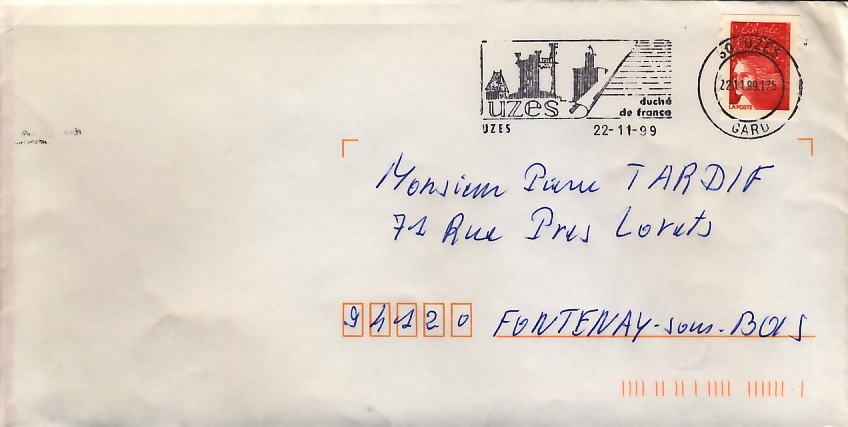 30 UZES
Liberté
22 11.99.17H
LA POSTE
GARD
uzes
duché
de france
UZES
22-11-99
Monsieur Pierre TARDIF
71 Rue Pres Lorets
94120 FONTENAY-sous-BOIS